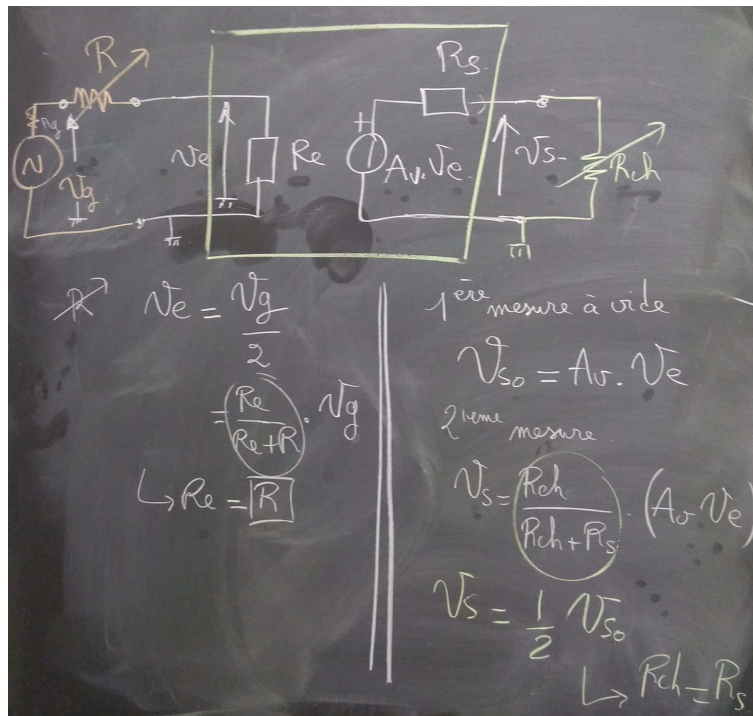 R
Rs
Vg
Ve
Re
+
Av.Ve
Vs
Rch
R Ve = Vg / 2
= Re / (Re+R) . Vg
↳ Re = R
1ère mesure à vide
Vso = Av. Ve
2ième mesure
Vs = Rch / (Rch + Rs) . (Av Ve)
Vs = 1/2 Vso
↳ Rch = Rs